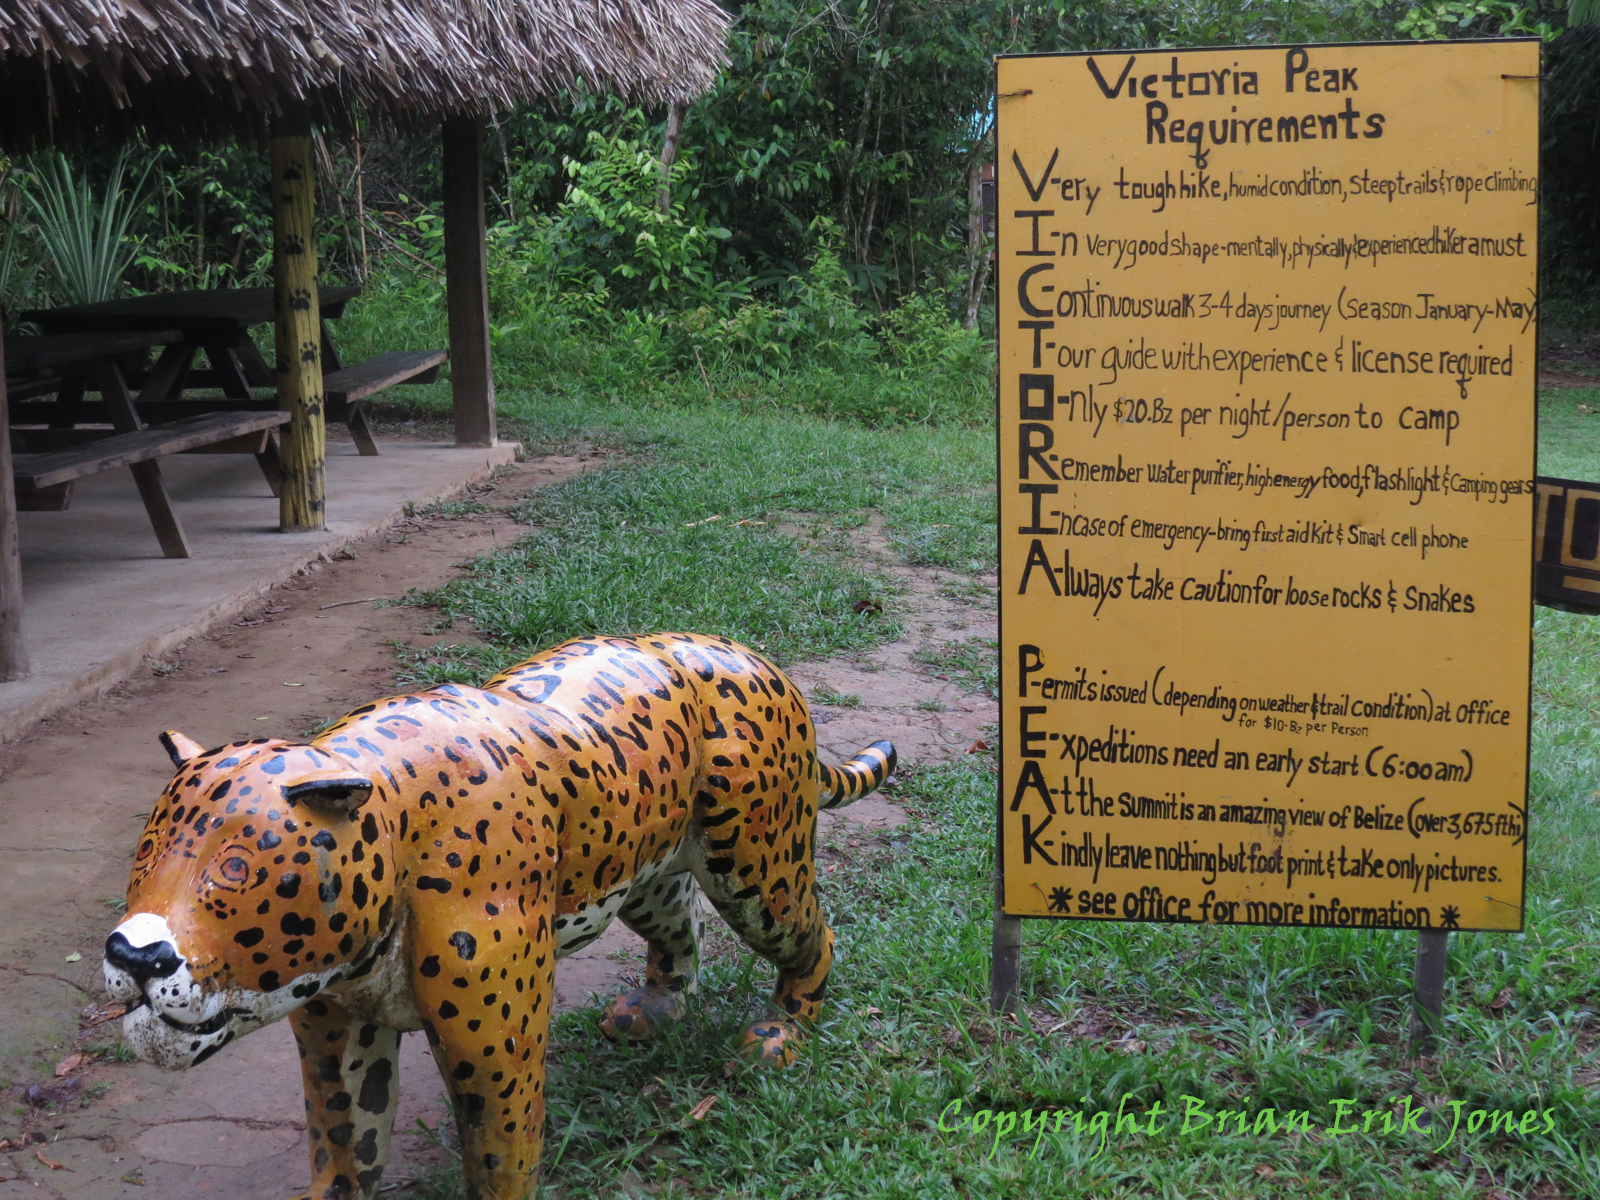 Victoria Peak
Requirements
V-ery tough hike, humid condition, steep trails & rope climbing
I-n very good shape-mentally, physically & experienced hiker a must
C-ontinuous walk 3-4 days journey (season January-May)
T-our guide with experience & license required
O-nly $20.Bz per night/person to camp
R-emember water purifier, high energy food, flashlight & Camping gears
I-ncase of emergency-bring first aid Kit & Smart cell phone
A-lways take Caution for loose rocks & Snakes
P-ermits issued (depending on weather & trail Condition) at office
for $10.Bz per Person
E-xpeditions need an early start (6:00am)
A-t the Summit is an amazing view of Belize (over 3,675ft hi)
K-indly leave nothing but foot print & take only pictures.
*see office for more information*
Copyright Brian Erik Jones